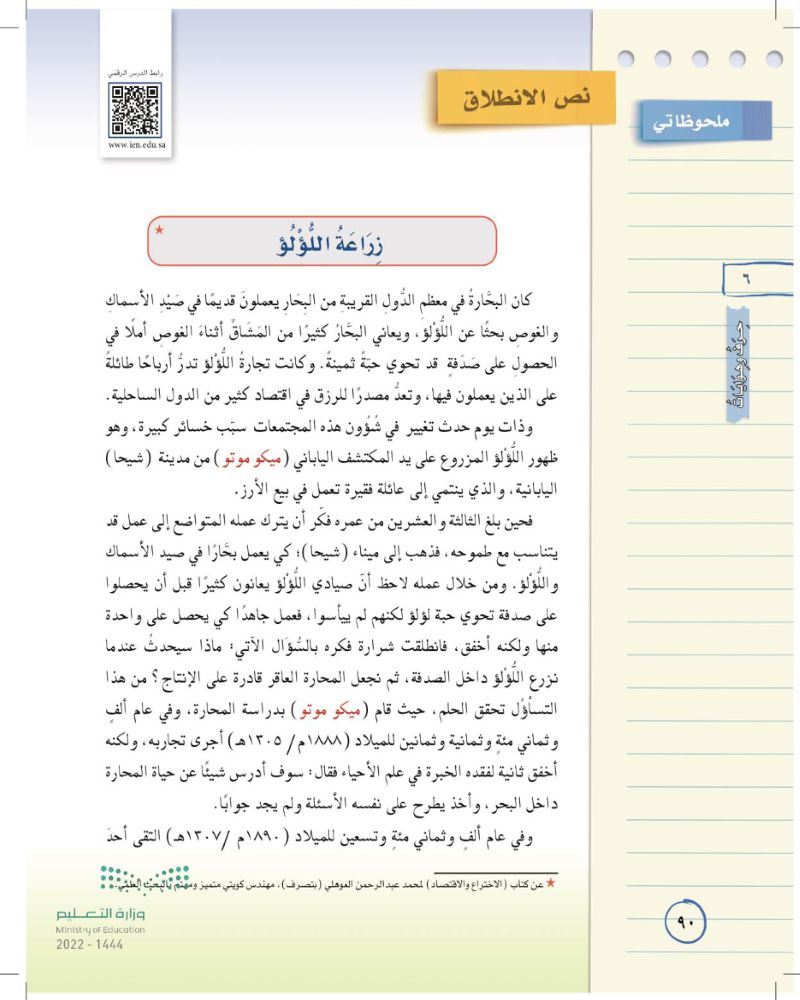 رابط الدرس الرقمي
www.ien.edu.sa
نص الانطلاق
ملحوظاتي
زِرَاعَةُ اللُّؤْلُؤ
★
كان البحَّارةُ في معظمِ الدُّولِ القريبةِ من البِحَارِ يعملونَ قديمًا في صَيْدِ الأسماكِ
والغوصِ بحثًا عن اللُّؤلؤ، ويعاني البحَّارُ كثيرًا من المَشَاقِّ أثناءَ الغوصِ أملًا في
الحصولِ على صَدَفةٍ قد تحوي حبَةً ثمينةً. وكانت تجارةُ اللُّؤلؤ تدرُّ أرباحًا طائلةً
على الذين يعملون فيها، وتعدُّ مصدرًا للرزق في اقتصاد كثير من الدول الساحلية.
وذات يوم حدث تغيير في شُؤون هذه المجتمعات سبّب خسائر كبيرة، وهو
ظهور اللُّؤلؤ المزروع على يد المكتشف الياباني (ميكو موتو) من مدينة (شيحا)
اليابانية، والذي ينتمي إلى عائلة فقيرة تعمل في بيع الأرز.
فحين بلغ الثالثة والعشرين من عمره فكّر أن يترك عمله المتواضع إلى عمل قد
يتناسب مع طموحه، فذهب إلى ميناء (شيحا)؛ كي يعمل بحَّارًا في صيد الأسماك
واللُّؤلؤ. ومن خلال عمله لاحظ أنّ صيادي اللُّؤلؤ يعانون كثيرًا قبل أن يحصلوا
على صدفة تحوي حبة لؤلؤ لكنهم لم ييأسوا، فعمل جاهدًا كي يحصل على واحدة
منها ولكنه أخفق، فانطلقت شرارة فكره بالسُّؤال الآتي: ماذا سيحدثُ عندما
نزرع اللُّؤلؤ داخل الصدفة، ثم نجعل المحارة العاقر قادرة على الإنتاج؟ من هذا
التساؤل تحقق الحلم، حيث قام (ميكو موتو) بدراسة المحارة، وفي عام ألفٍ
وثماني مئةٍ وثمانية وثمانين للميلاد (١٨٨٨م/ ١٣٠٥هـ) أجرى تجاربه، ولكنه
أخفق ثانية لفقده الخبرة في علم الأحياء فقال: سوف أدرس شيئًا عن حياة المحارة
داخل البحر، وأخذ يطرح على نفسه الأسئلة ولم يجد جوابًا.
وفي عام ألفٍ وثماني مئةٍ وتسعين للميلاد (١٨٩٠م /١٣٠٧هـ) التقى أحدَ
★ عن كتاب (الاختراع والاقتصاد) لمحمد عبدالرحمن العوهلي (بتصرف)، مهندس كويتي متميز ومهتم بالبحث العلمي.
٦
حِرَفٌ وَهِوَايَاتٌ
٩٠
وزارة التعـلـيم
Ministry of Education
2022 - 1444